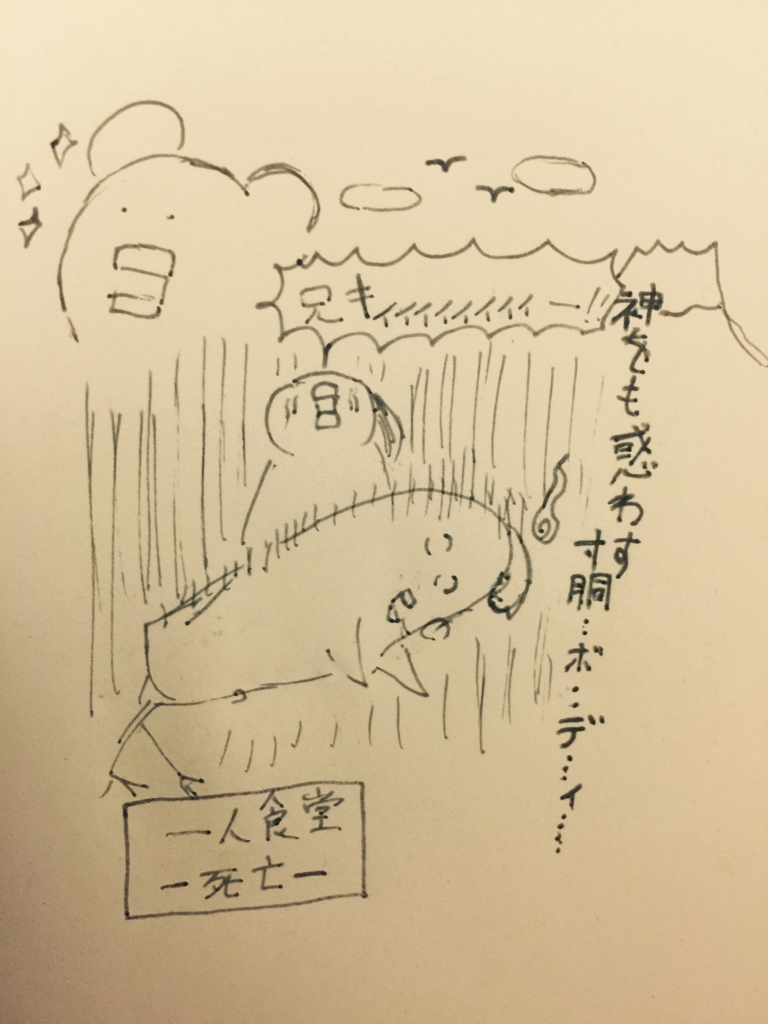 兄キィィィィィィィィー!!
神をも惑わす
寸胴…ボ…ディ……
一人食堂
ー死亡ー